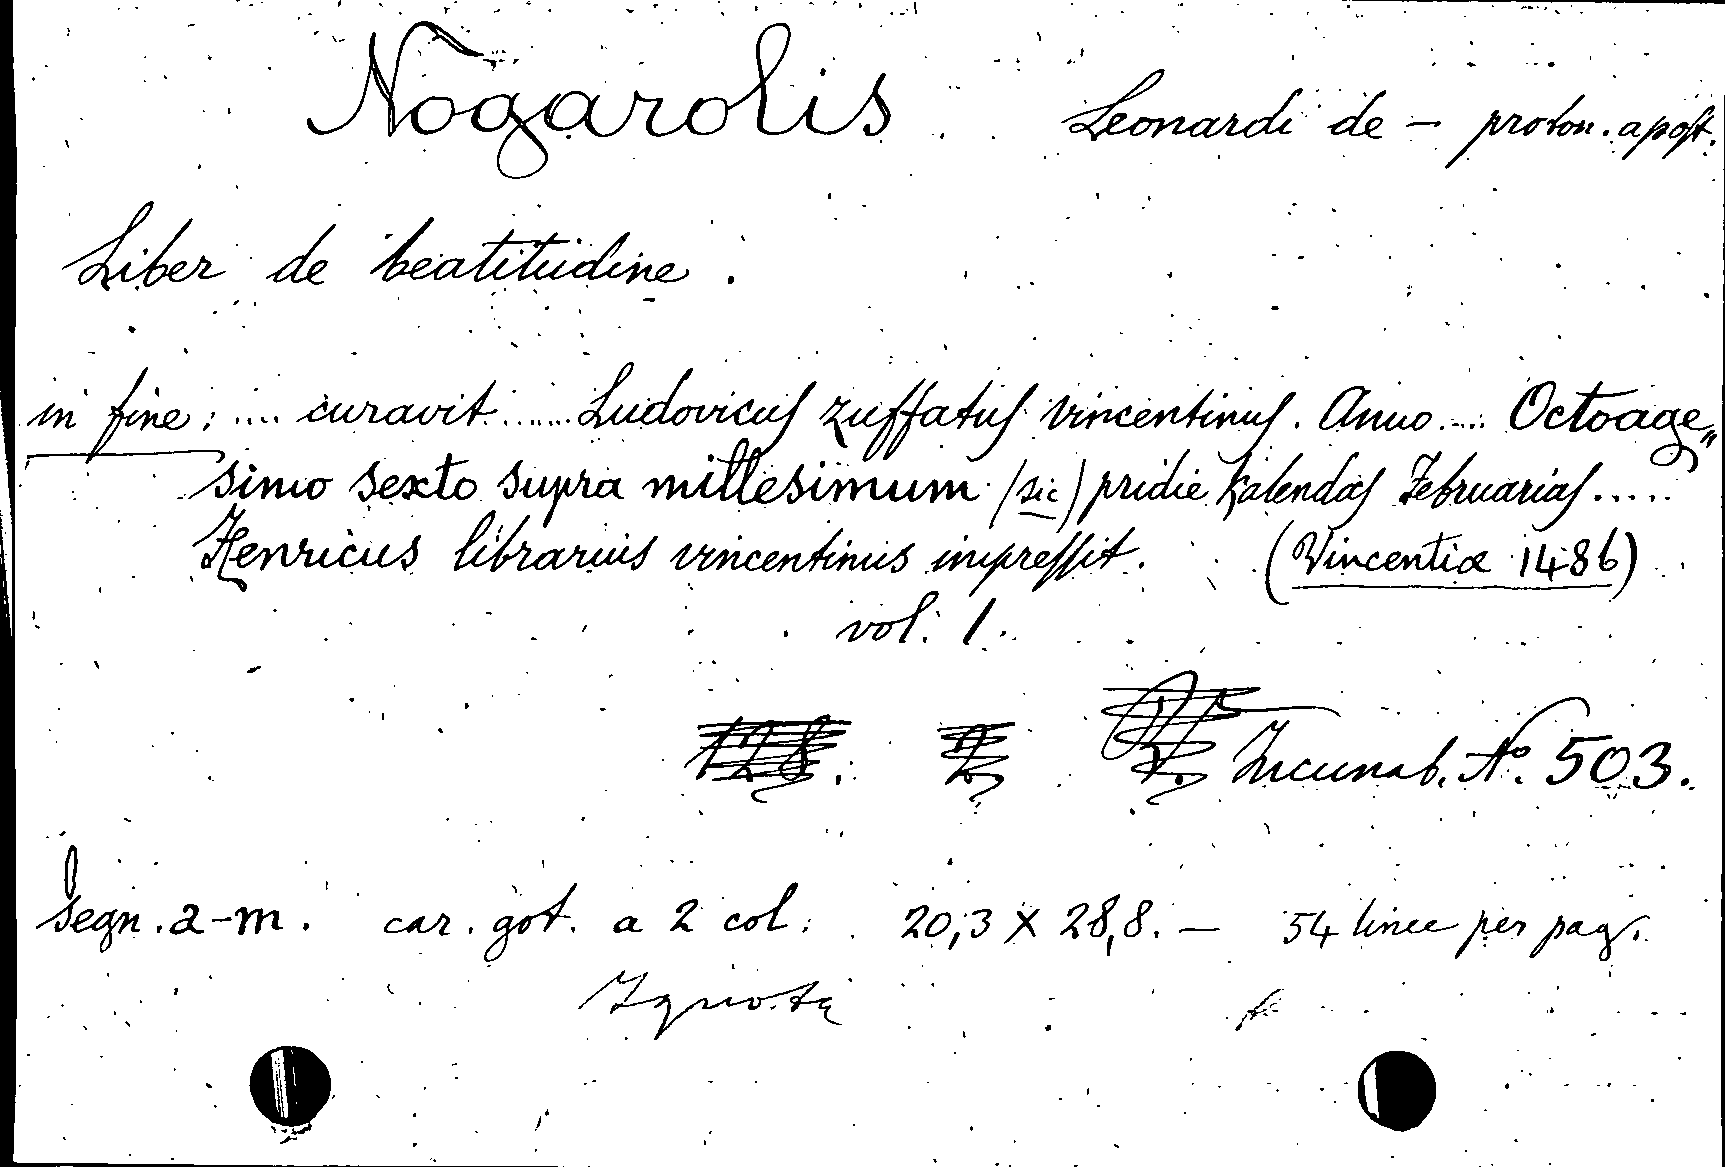 Nogarolis Leonardi de – proton. apost.
Liber de beatitudine.
in fine: .... curavit ...... Ludovicus zuffatus vincentinus. Anno .... Octoage„
simo sexto supra millesimum (sic) pridie kalendas Februarias .....
Henricus librarius vincentinus impressit. (Vincentiæ 1486)
vol. 1.
Incunab. No. 503.
Segn. a-m. car. got. a 2 col. 20,3 X 28,8. – 54 linee per pag.